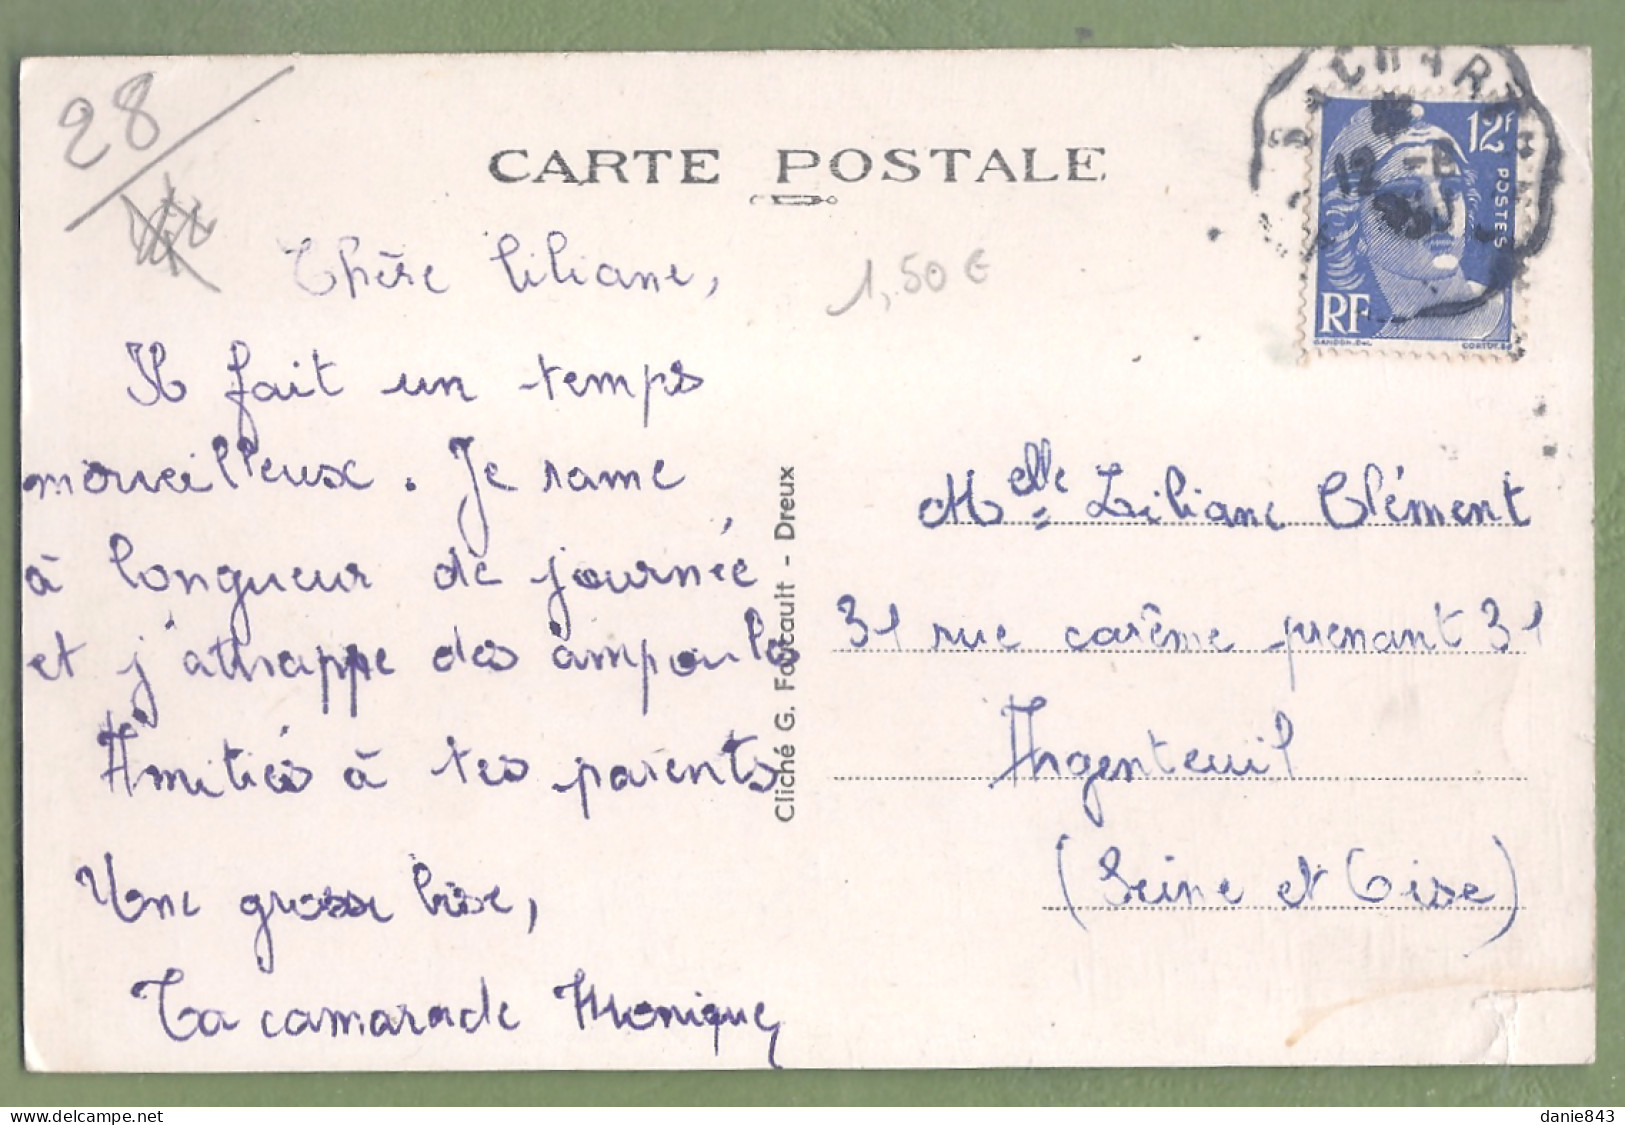 28
CARTE POSTALE
1,50 €
12F
POSTES
RF
12 -8
Chère Liliane,
Il fait un temps
merveilleux. Je rame
à longueur de journée
et j'attrappe des ampoules
Amitiés à tes parents
Une grosse bise,
Ta camarade Monique
Cliché G. Foucault - Dreux
Melle Liliane Clément
31 rue carême prenant 31
Argenteuil
(Seine et Oise)
www.delcampe.net
danie843